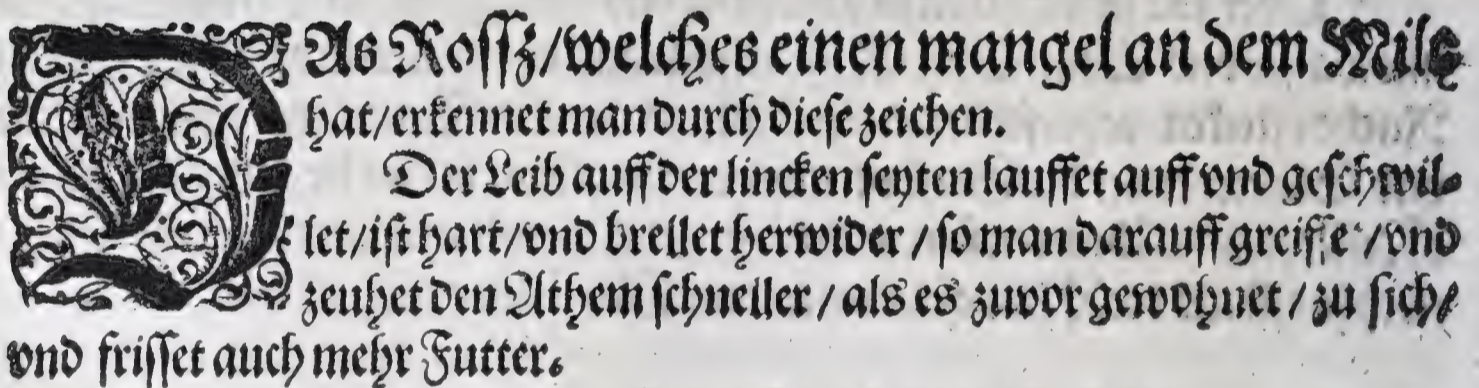 DAs Roſſz/welches einen mangel an dem Miltz
hat/erkennet man durch dieſe zeichen.
Der Leib auff der lincken ſeyten lauffet auff vnd geſchwil⸗
let/iſt hart/vnd brellet herwider / ſo man darauff greiffet / vnd
zeuhet den Athem ſchneller / als es zuvor gewohnet / zu ſich/
vnd friſſet auch mehr Futter.